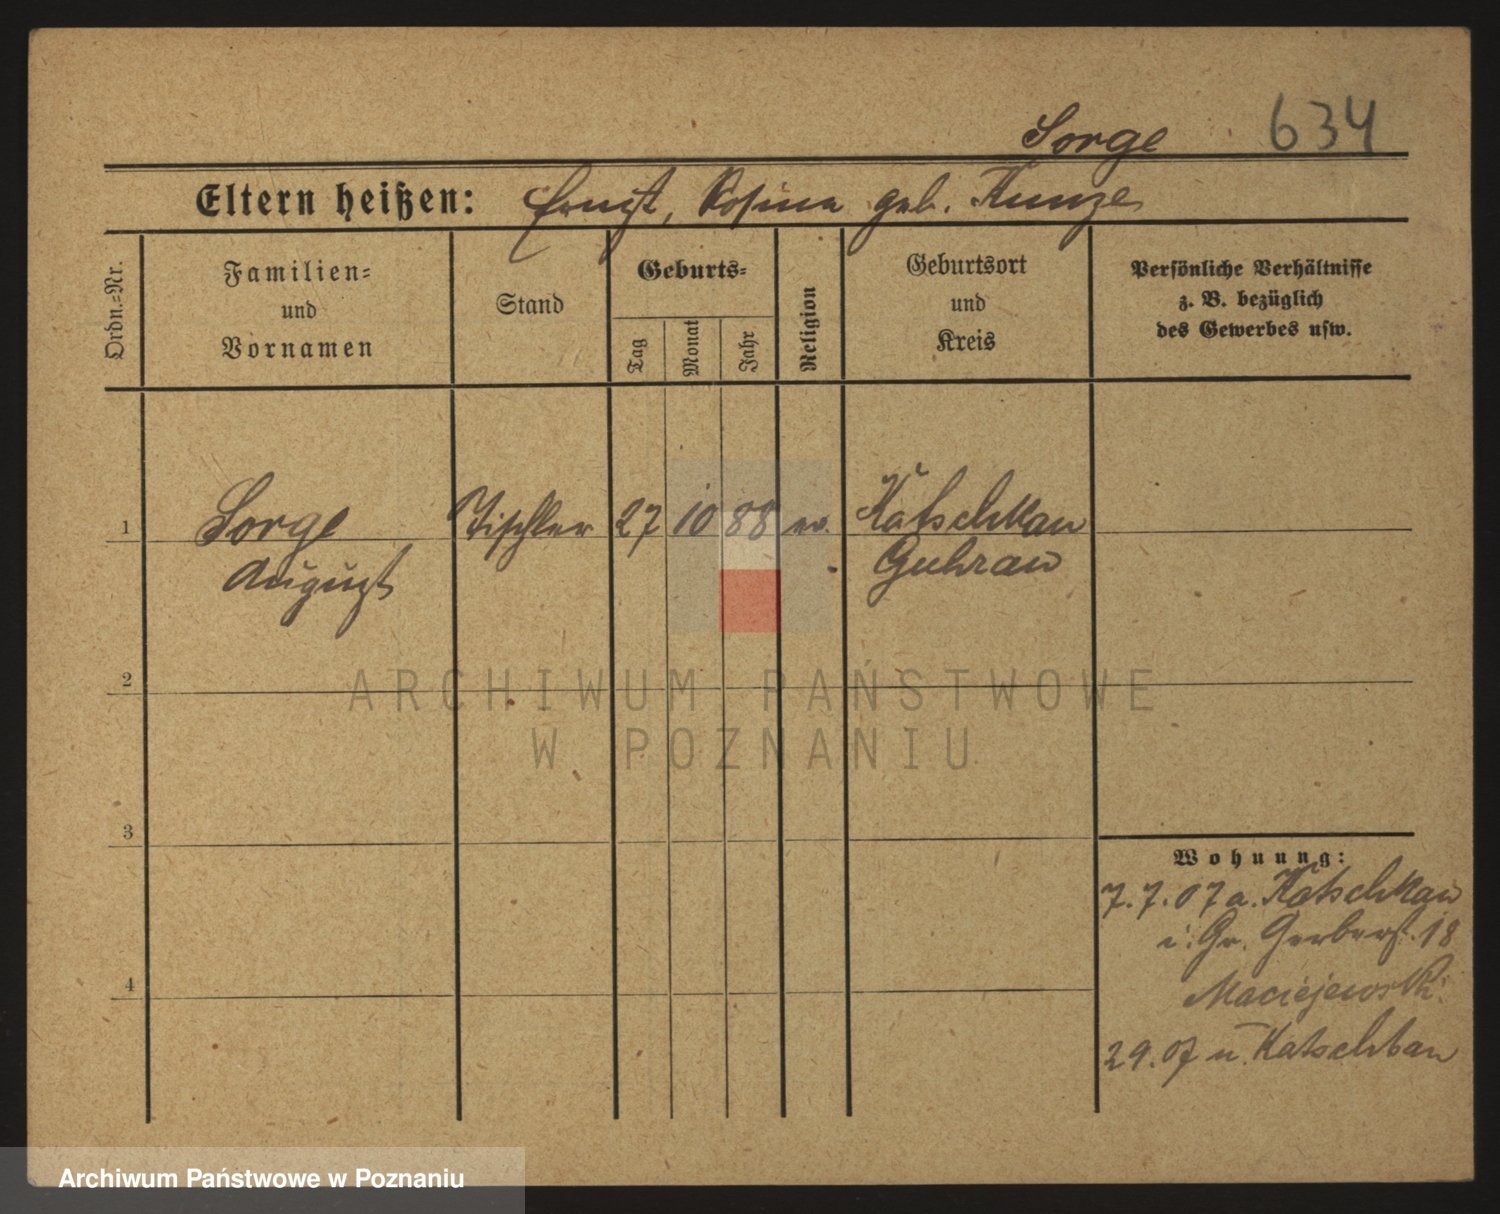 Sorge 634
Eltern heißen: Ernst, Rosina geb. Kunze
Ordn.-Nr.
Familien-
und
Vornamen
Stand
Geburts-
Tag
Monat
Jahr
Religion
Geburtsort
und
Kreis
Persönliche Verhältnisse
z. B. bezüglich
des Gewerbes usw.
1 Sorge Tischler 27 10 88 ev. Katschkau
August Guhrau
2
3
4
Wohnung:
7.7.07 a. Katschkau
i. Gr. Gerberst. 18
Maciejewski
29.07 n. Katschkau
ARCHIWUM PAŃSTWOWE
W POZNANIU
Archiwum Państwowe w Poznaniu